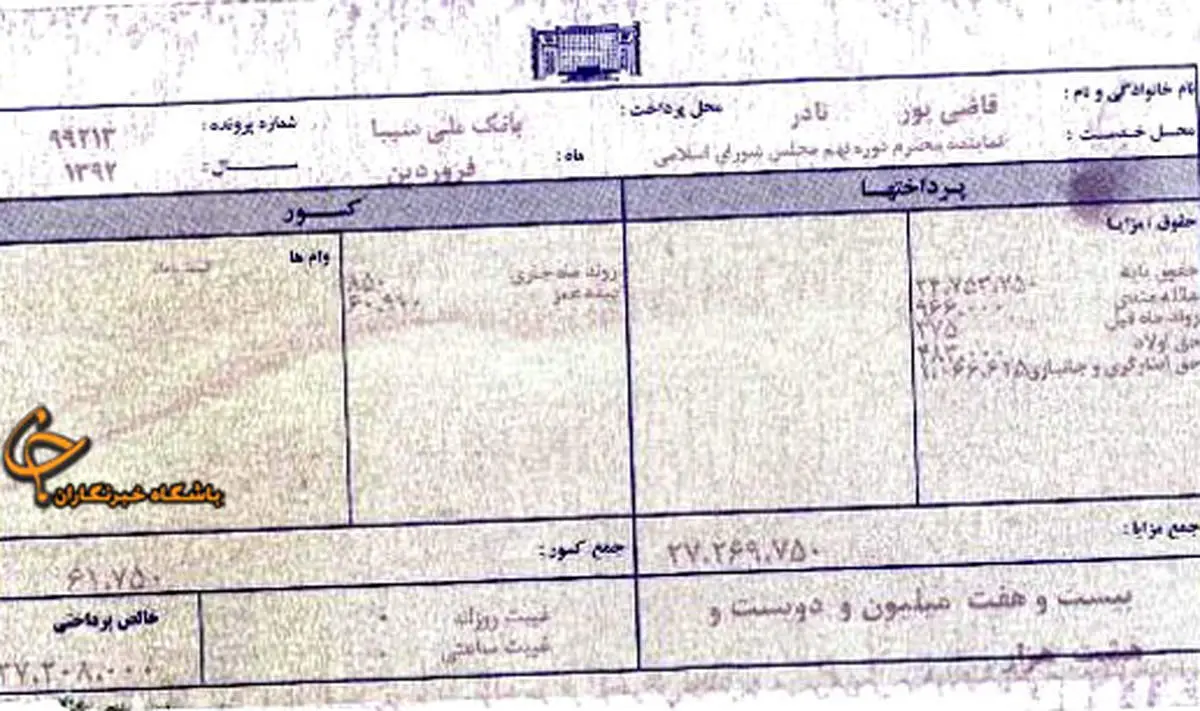 نام خانوادگی و نام : قاضی پور نادر محل پرداخت : بانک ملی شماره پرونده : ۹۹۲۱۳
محل خدمت : نماینده محترم دوره نهم مجلس شورای اسلامی ماه : فروردین ســـال : ۱۳۹۲
پرداختها
کســـور
حقوق امزایا
حقوق پایه ۲۴.۷۵۳.۷۵۰
عائله مندی ۹۶۶.۰۰۰
روند ماه قبل ۳۷۵
حق اولاد ۴۸۳.۰۰۰
حق ایثارگری و جانبازی ۱.۰۶۶.۶۲۵
روند ماه جاری ۸۵۰
بیمه عمر ۶۰.۹۰۰
وام ها
جمع مزایا : ۲۷.۲۶۹.۷۵۰
جمع کسور : ۶۱.۷۵۰
بیست و هفت میلیون و دویست و
هشت هزار
غیبت روزانه ۰
غیبت ساعتی ۰
خالص پرداختی
۲۷.۲۰۸.۰۰۰
باشگاه خبرنگاران